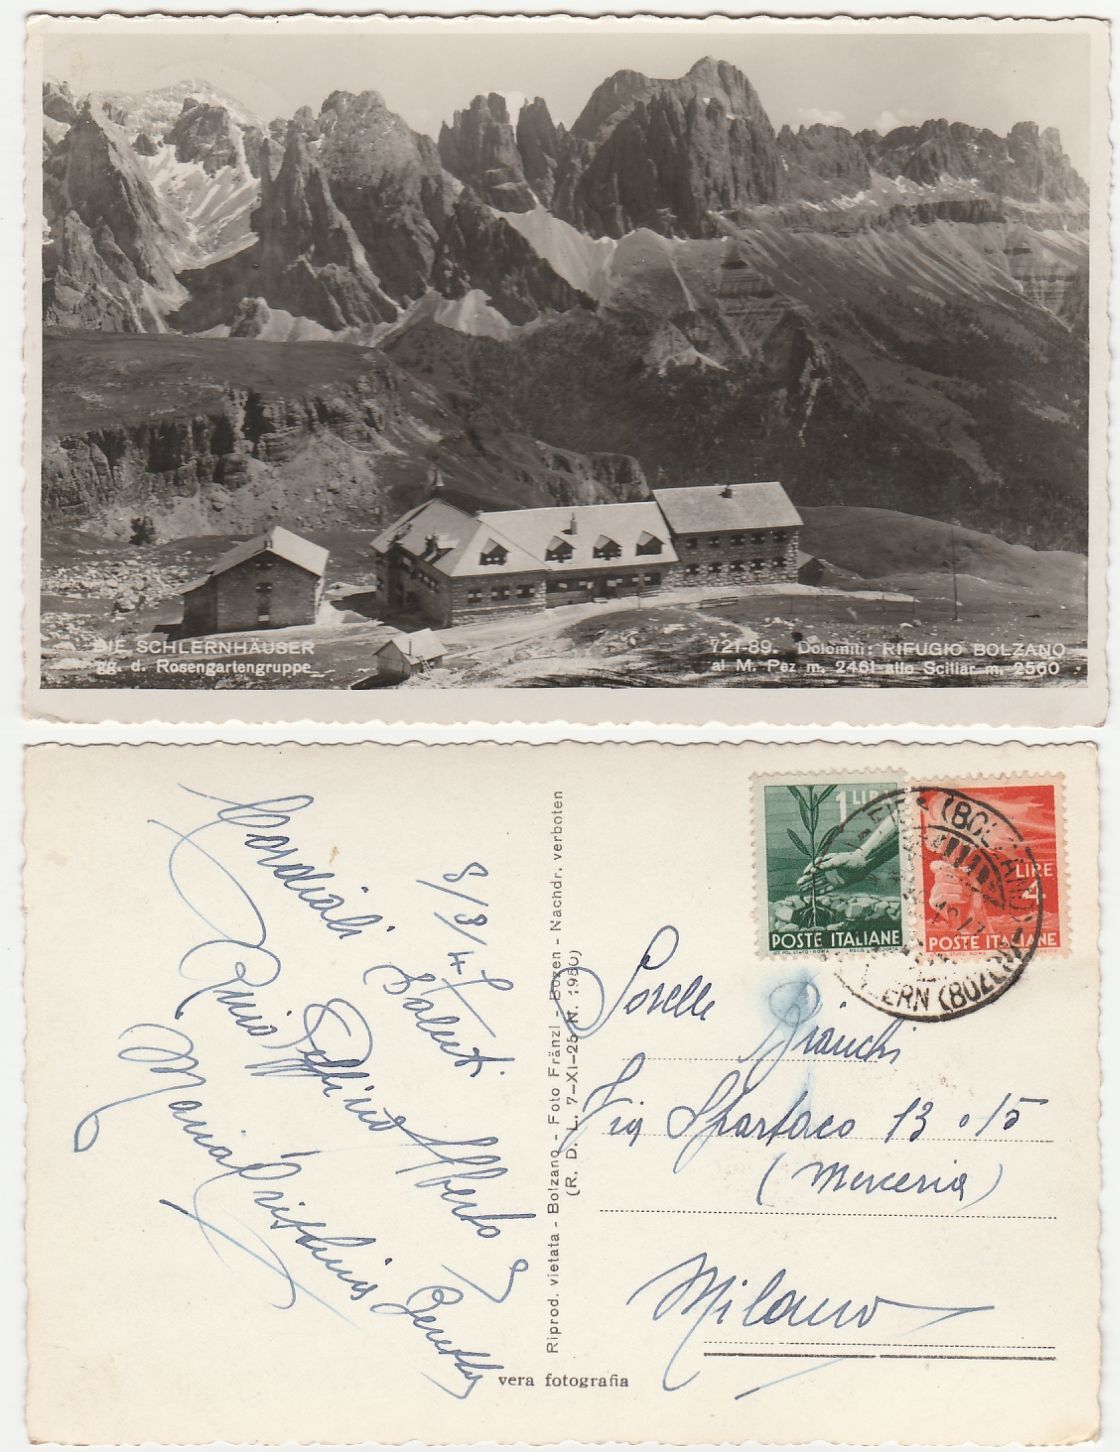 DIE SCHLERNHÄUSER
gg. d. Rosengartengruppe
721-89. Dolomiti: RIFUGIO BOLZANO
al M. Pez m. 2461 allo Sciliar m. 2560
8/8/47
Cordiali Saluti
Alberto
Maria Cristina
Riprod. vietata - Bolzano - Foto Fränzl - Bozen - Nachdr. verboten
(R. D. L. 7-XI-25 N. 1950)
vera fotografia
1 LIRE
POSTE ITALIANE
LIRE
4
POSTE ITALIANE
(BOLZANO)
Sorelle Bianchi
Via Spartaco 13 o 15
(Merceria)
Milano